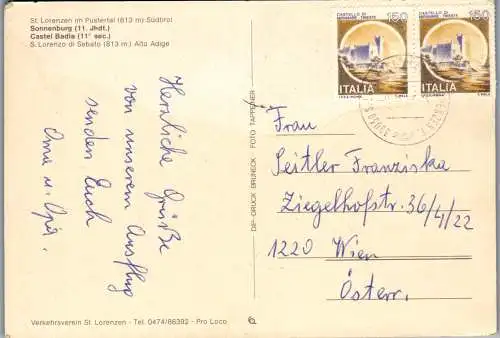 St. Lorenzen im Pustertal (813 m) Südtirol
Sonnenburg (11. Jhdt.)
Castel Badia (11° sec.)
S. Lorenzo di Sebato (813 m) Alto Adige
Herzliche Grüße
von unserem Ausflug
senden Euch
Oma u. Opa.
Verkehrsverein St. Lorenzen - Tel. 0474/86392 - Pro Loco
DIE-DRUCK BRINECK FOTO TAPPEINER
CASTELLO DI
MIRAMARE - TRIESTE
150
ITALIA
CASTELLO DI
MIRAMARE - TRIESTE
150
ITALIA
39030
Frau
Seitler Franziska
Ziegelhofstr. 36/4/22
1220 Wien
Österr.